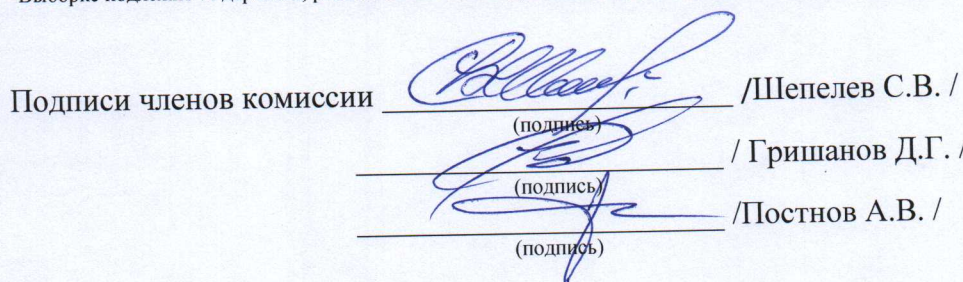 Подписи членов комиссии /Шепелев С.В. /
(подпись)
/ Гришанов Д.Г. /
(подпись)
/Постнов А.В. /
(подпись)